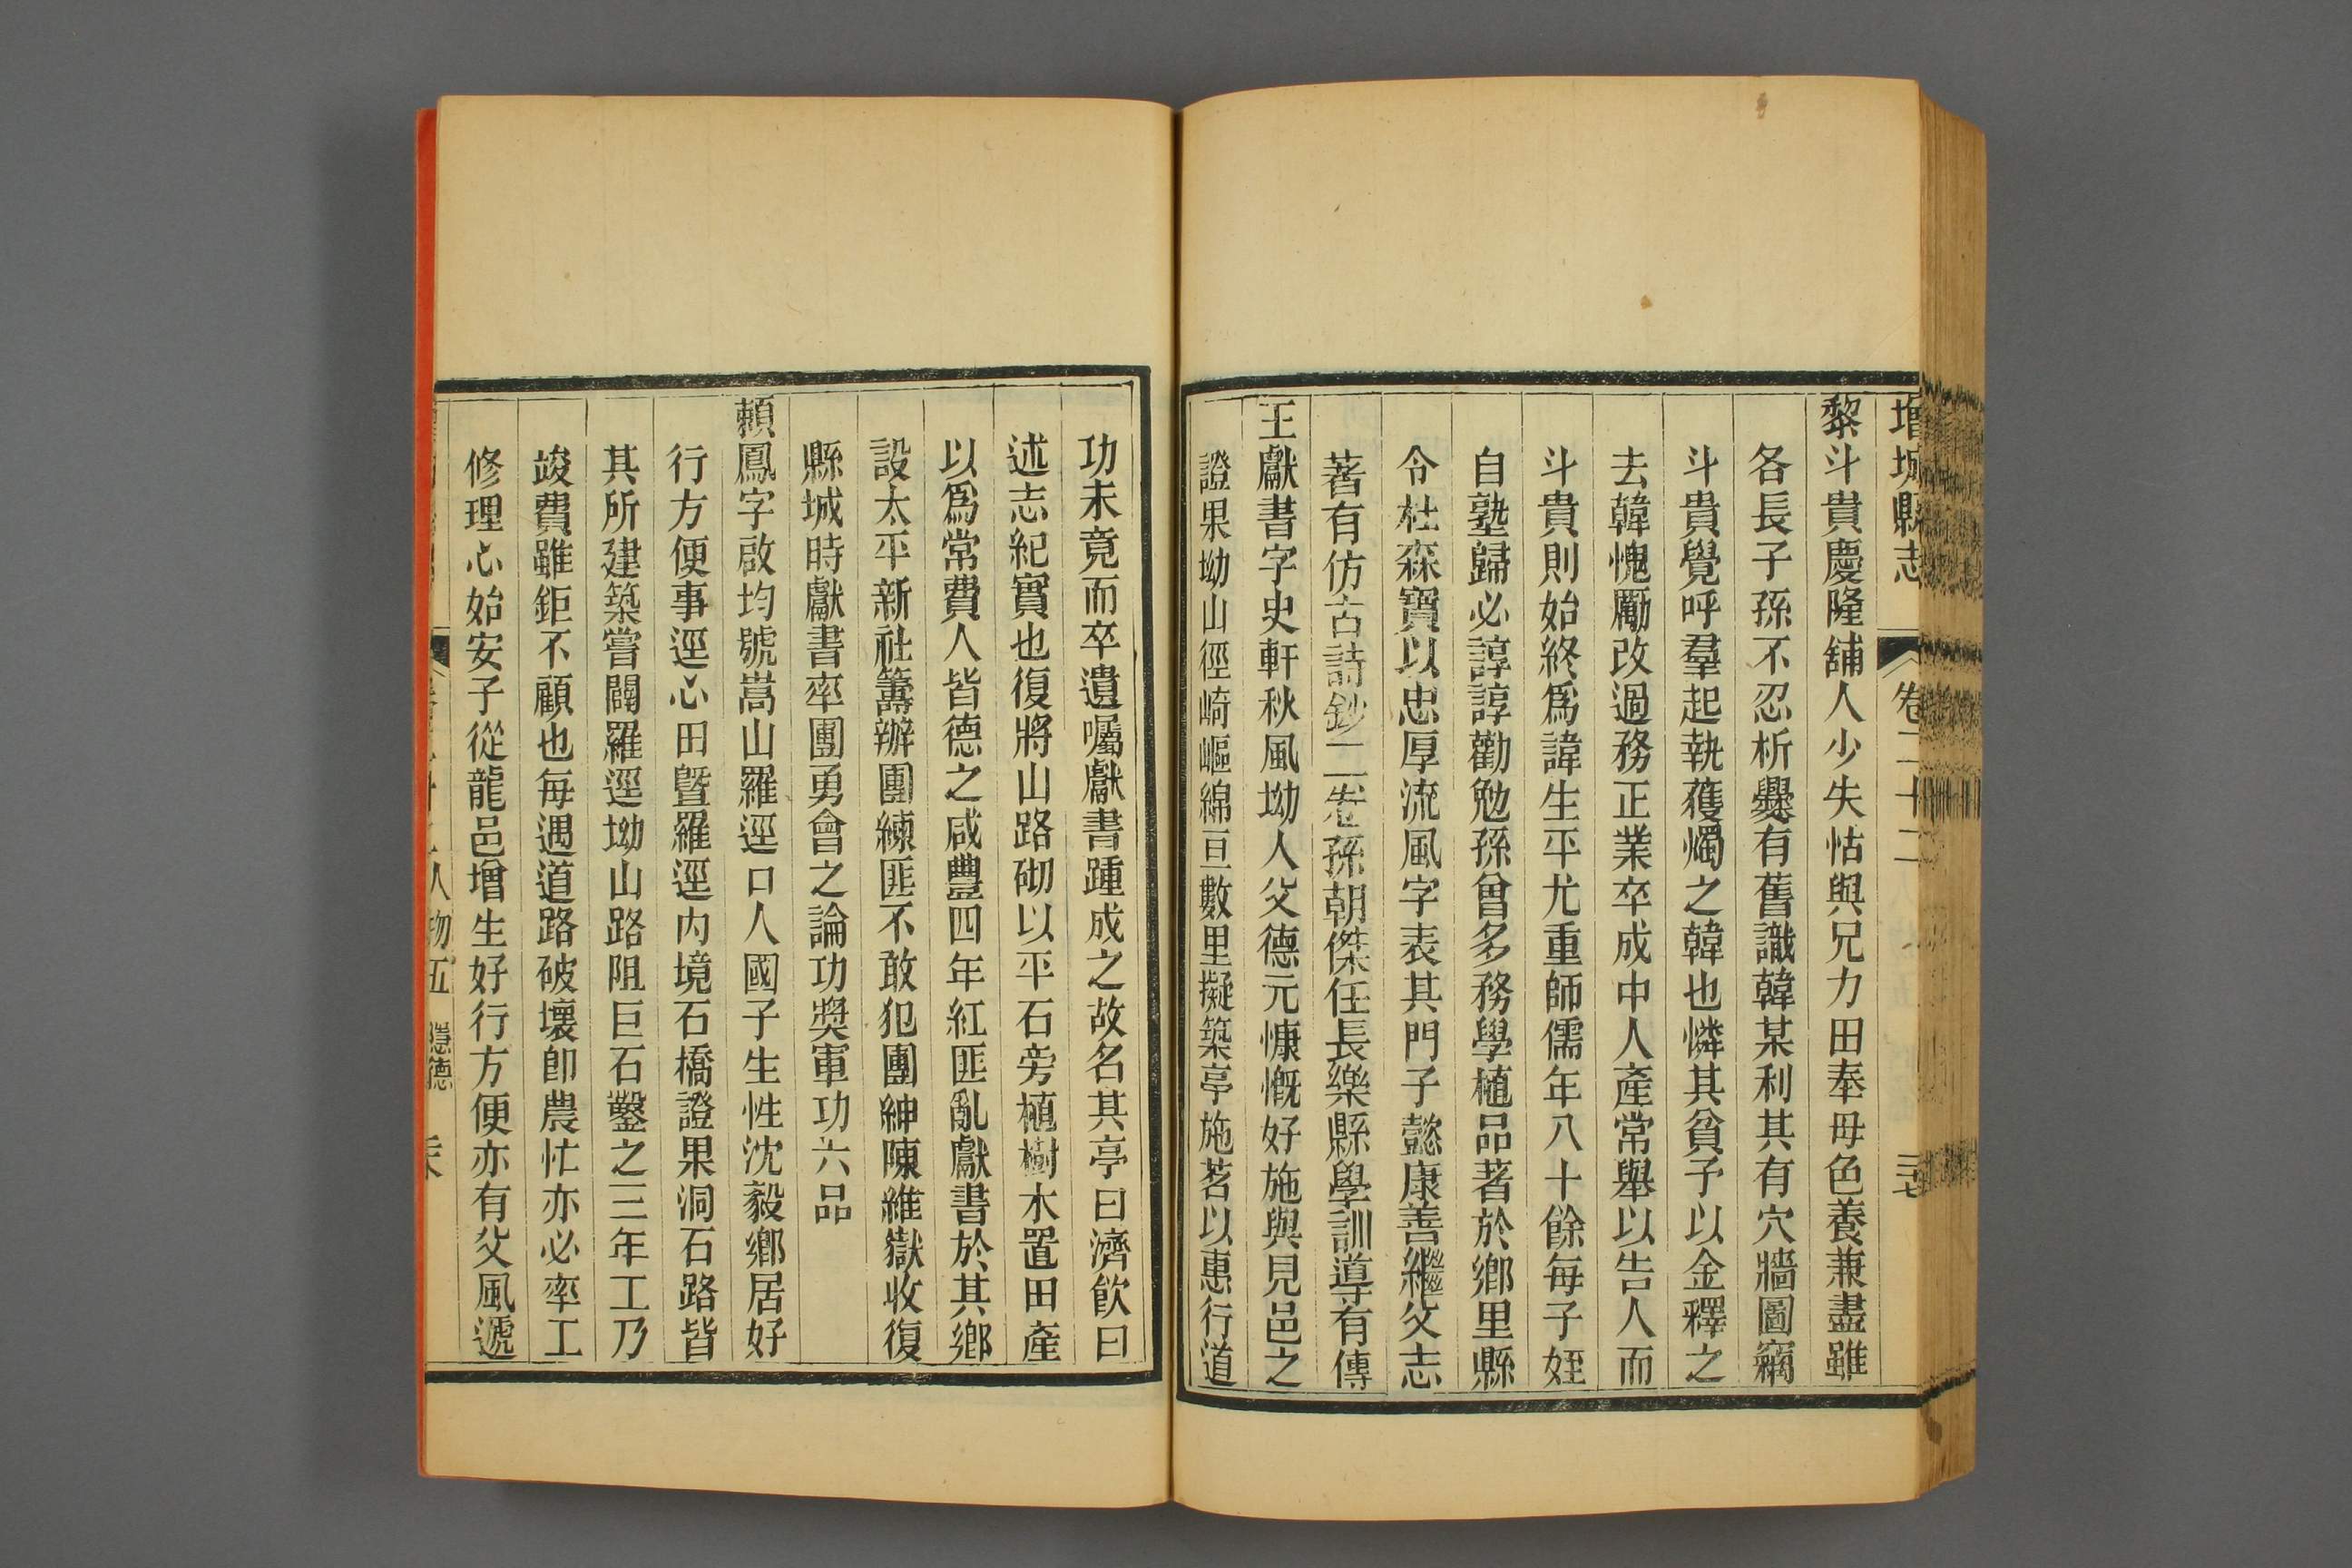 增城縣志 卷二十二 三七
黎斗貴慶隆舖人少失怙與兄力田奉母色養兼盡雖
各長子孫不忍析爨有舊識韓某利其有穴牆圖竊
斗貴覺呼羣起執獲燭之韓也憐其貧予以金釋之
去韓愧勵改過務正業卒成中人產常舉以告人而
斗貴則始終爲諱生平尤重師儒年八十餘每子姪
自塾歸必諄諄勸勉孫曾多務學植品著於鄉里縣
令杜森寶以忠厚流風字表其門子懿康善繼父志
著有仿古詩鈔二卷孫朝傑任長樂縣學訓導有傳
王獻書字史軒秋風坳人父德元慷慨好施與見邑之
證果坳山徑崎嶇綿亘數里擬築亭施茗以惠行道
功未竟而卒遺囑獻書踵成之故名其亭曰濟飮曰
述志紀實也復將山路砌以平石旁植樹木置田產
以爲常費人皆德之咸豐四年紅匪亂獻書於其鄉
設太平新社籌辦團練匪不敢犯團紳陳維嶽收復
縣城時獻書率團勇會之論功奬軍功六品
賴鳳字啟均號嵩山羅逕口人國子生性沈毅鄉居好
行方便事逕心田曁羅逕內境石橋證果洞石路皆
其所建築嘗闢羅逕坳山路阻巨石鑿之三年工乃
竣費雖鉅不顧也每遇道路破壞卽農忙亦必率工
修理心始安子從龍邑增生好行方便亦有父風遞
人物五 隱德